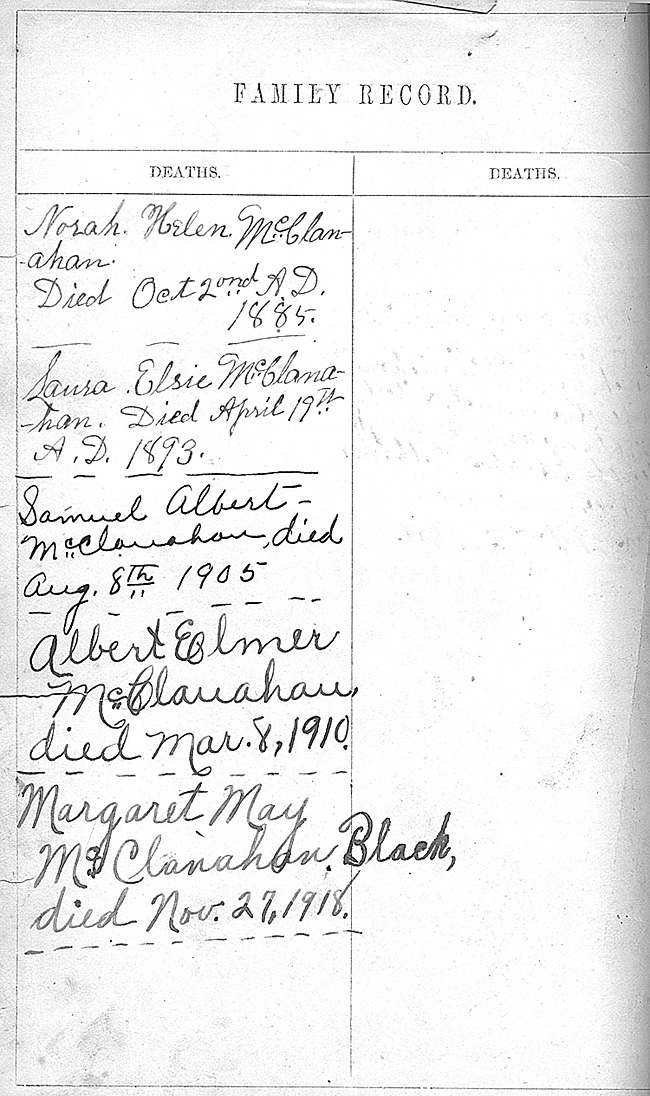 FAMILY RECORD.
DEATHS.
DEATHS.
Norah. Helen. McClan-
-ahan.
Died Oct 2nd A.D.
1885.
Laura. Elsie McClana-
-han. Died April 19th
A.D. 1893.
Samuel Albert-
McClanahan, died
Aug. 8th 1905
Albert Elmer
McClanahan,
died Mar. 8, 1910.
Margaret May
McClanahan, Black,
died Nov. 27, 1918.